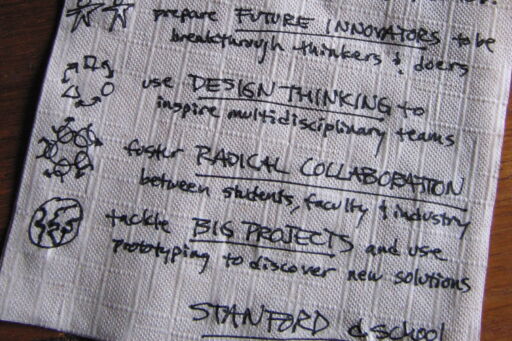 prepare FUTURE INNOVATORS to be
breakthrough thinkers & doers
use DESIGN THINKING to
inspire multidisciplinary teams
foster RADICAL COLLABORATION
between students, faculty & industry
tackle BIG PROJECTS and use
prototyping to discover new solutions
STANFORD d.school